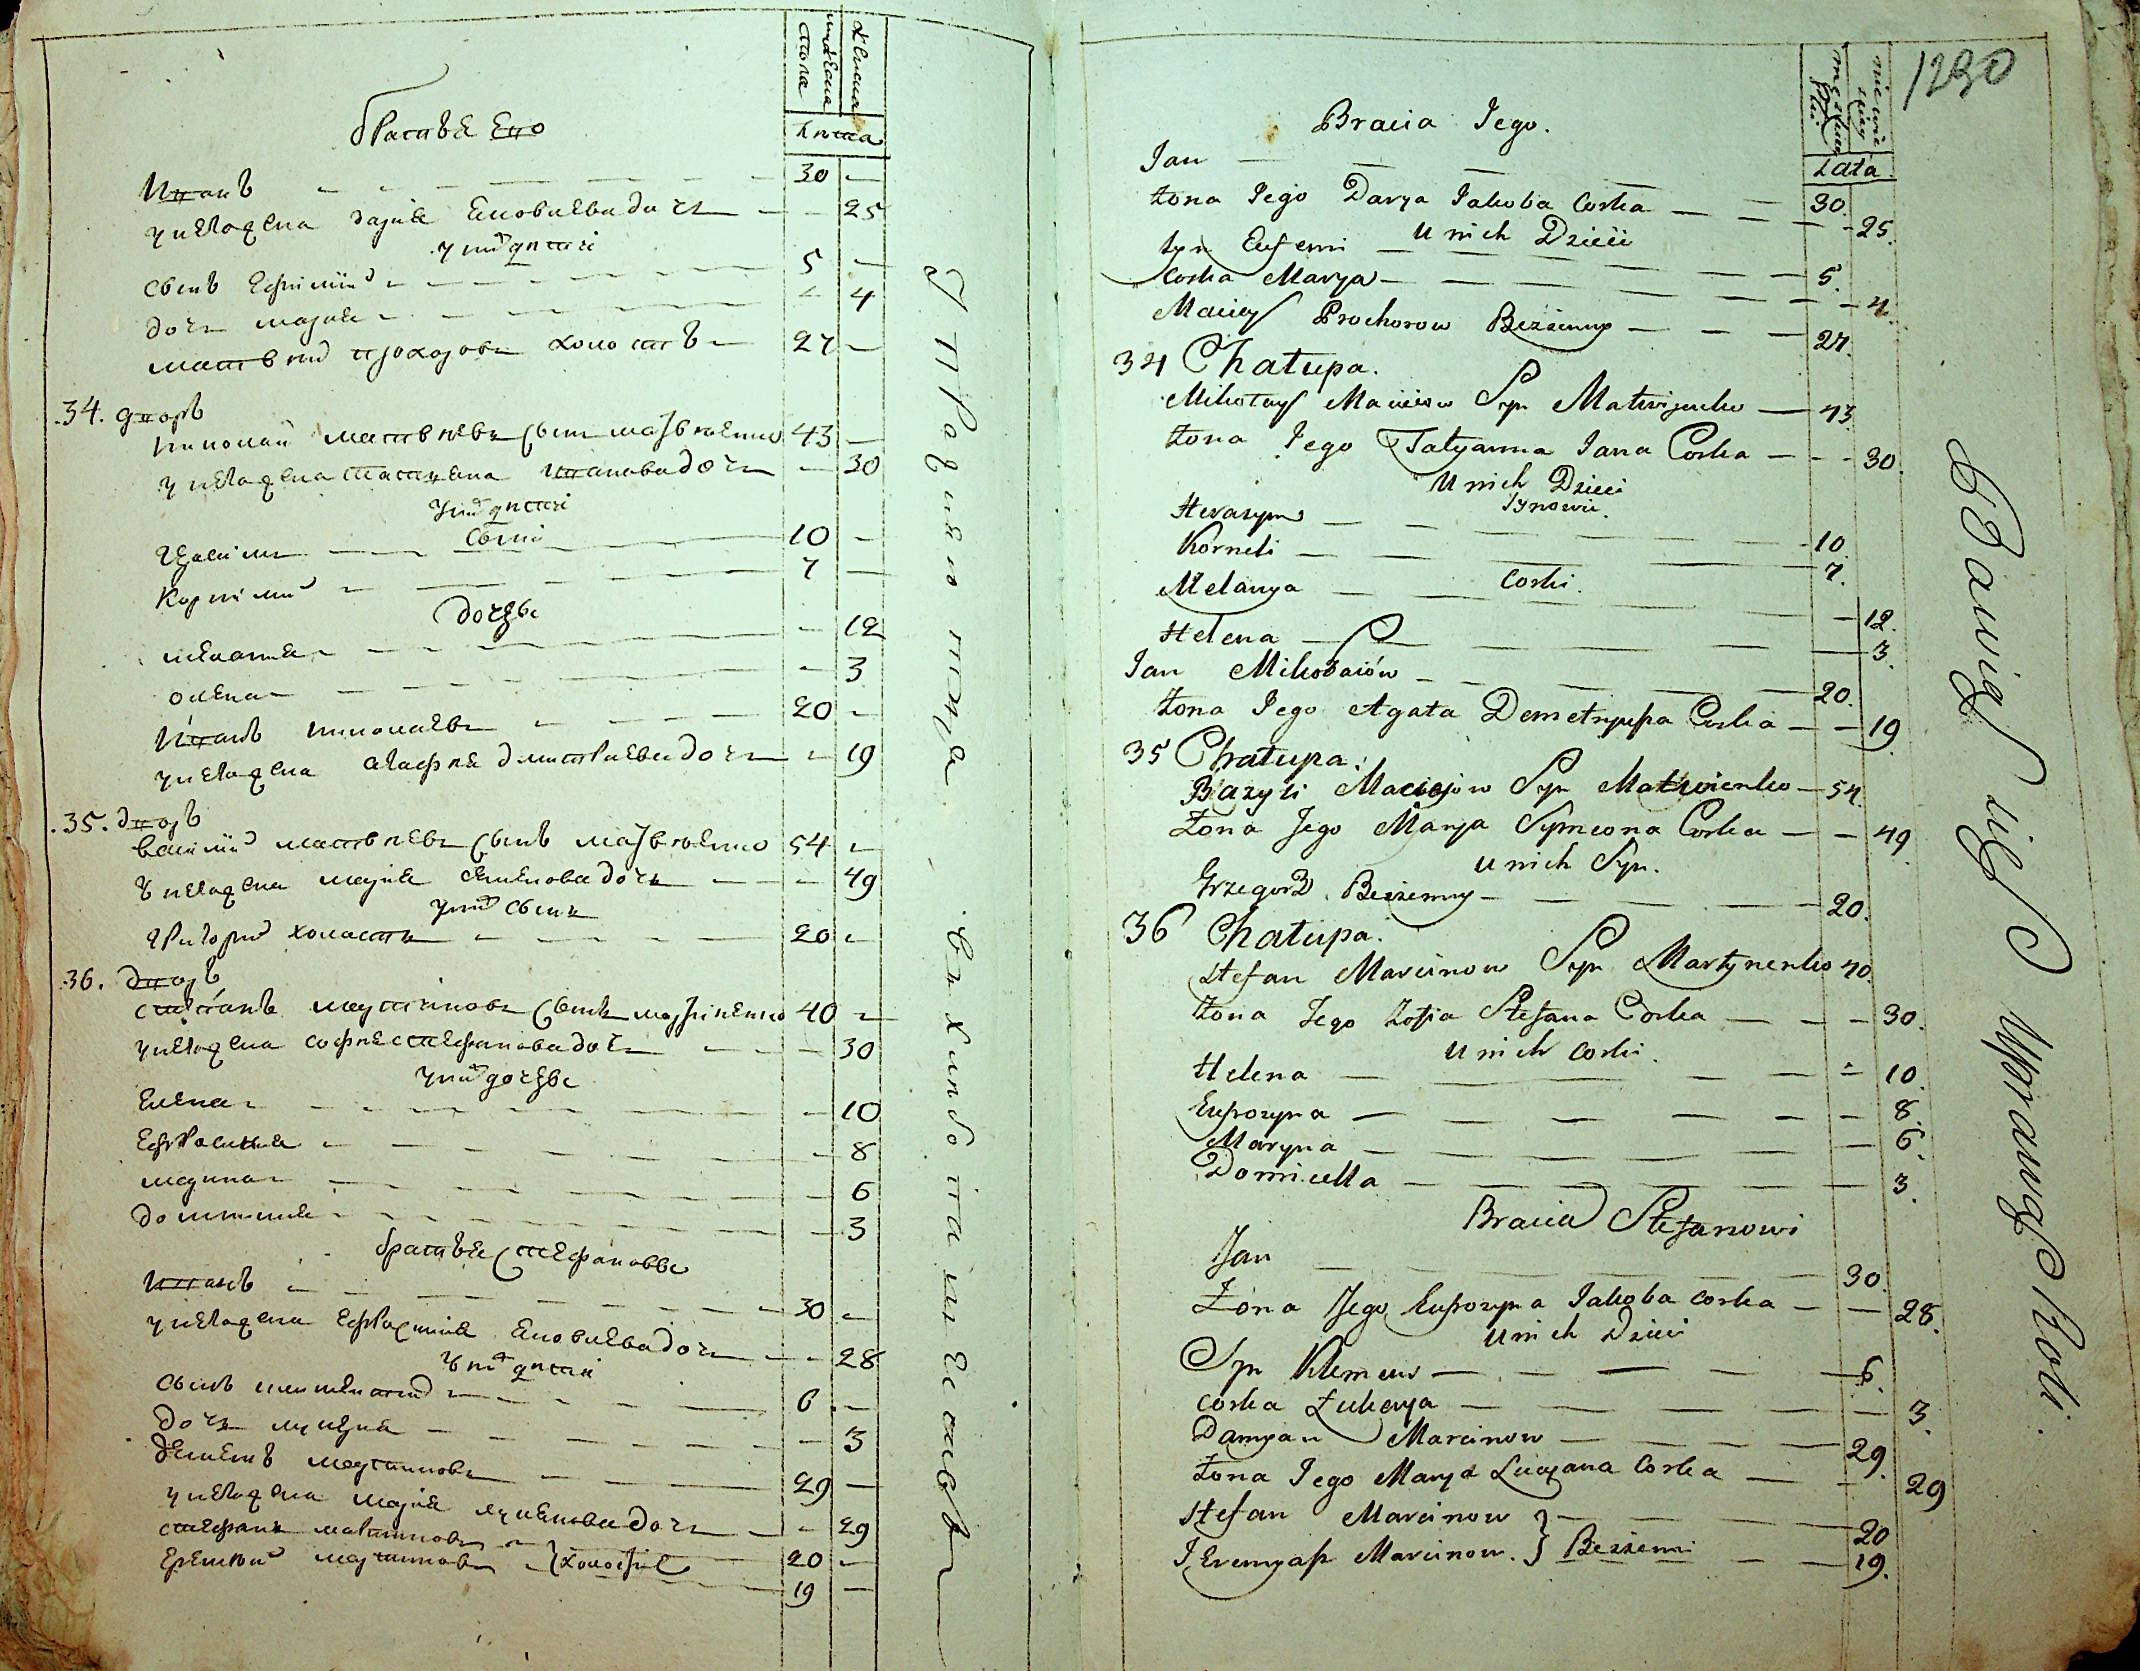 мужеска
пола
женска
Лѣта
братья его
Иванъ 30 —
у него жена дарія Яковлева дочь — 25
у ниҳъ дѣти
сынъ Ефимій 5 —
дочь марія — 4
матвѣй прохоровъ холостъ 27 —
34. дворъ
николай матвѣевъ сынъ матвѣенко 43 —
у него жена татіяна иванова дочь — 30
у нихъ дѣти
сыни
Герасимъ 10 —
Корнилий 7 —
дочеры
меланія — 12
олена — 3
Иванъ николаевъ 20 —
у него жена агафія дмитріева дочь — 19
35. дворъ
василій матвѣевъ сынъ матвѣенко 54 —
у него жена марія семенова дочь — 49
у нихъ сынъ
григорий холостъ 20 —
36. дворъ
стефанъ мартиновъ сынъ мартиненко 40 —
у него жена софія стефанова дочь — 30
у нихъ дочеры
Елена — 10
Ефросинія — 8
марина — 6
домникия — 3
братья стефановы
Иванъ 30 —
у него жена Ефросинія Яковлева дочь — 28
у нихъ дѣти
сынъ климентий 6 —
дочь лукерія — 3
демянъ мартиновъ 29 —
у него жена марія лукянова дочь — 29
стефанъ мартиновъ 20 —
еремѣй мартиновъ } холостые 19 —
1290
Lata
Bracia Jego.
Jan — 30.
żona Jego Darya Jakoba Corka — 25.
U nich Dzieci
syn Eufemi — 5.
Corka Marya — 4.
Maciey Prochorow Bezżenny — 27.
34 Chałupa.
Mikołay Maciiow Syn Matwijenko — 43.
żona Jego Tatyanna Jana Corka — 30.
U nich Dzieci
Synowie.
Herasym — 10.
Korneli — 7.
Corki.
Melanya — 12.
Helena — 3.
Jan Mikołaiów — 20.
żona Jego Agata Demetryusza Corka — 19.
35 Chałupa.
Bazyli Maciejow Syn Matwienko — 54.
Żona Jego Marya Symeona Corka — 49.
U nich Syn.
Grzegorz Bezżenny — 20.
36 Chałupa.
Stefan Marcinow Syn Martynenko 40.
żona Jego Zofia Stefana Corka — 30.
U nich Corki.
Helena — 10.
Eufrozyna — 8.
Maryna — 6.
Domicella — 3.
Bracia Stefanowi
Jan — 30.
Żona Jego Eufrozyna Jakoba corka — 28.
U nich Dzieci
Syn Klemens — 6.
corka Łukerya — 3.
Damyan Marcinow — 29.
żona Jego Marya Lucyana Corka — 29
Stefan Marcinow — 20
Jeremyasz Marcinow. } Bezżenni — 19.